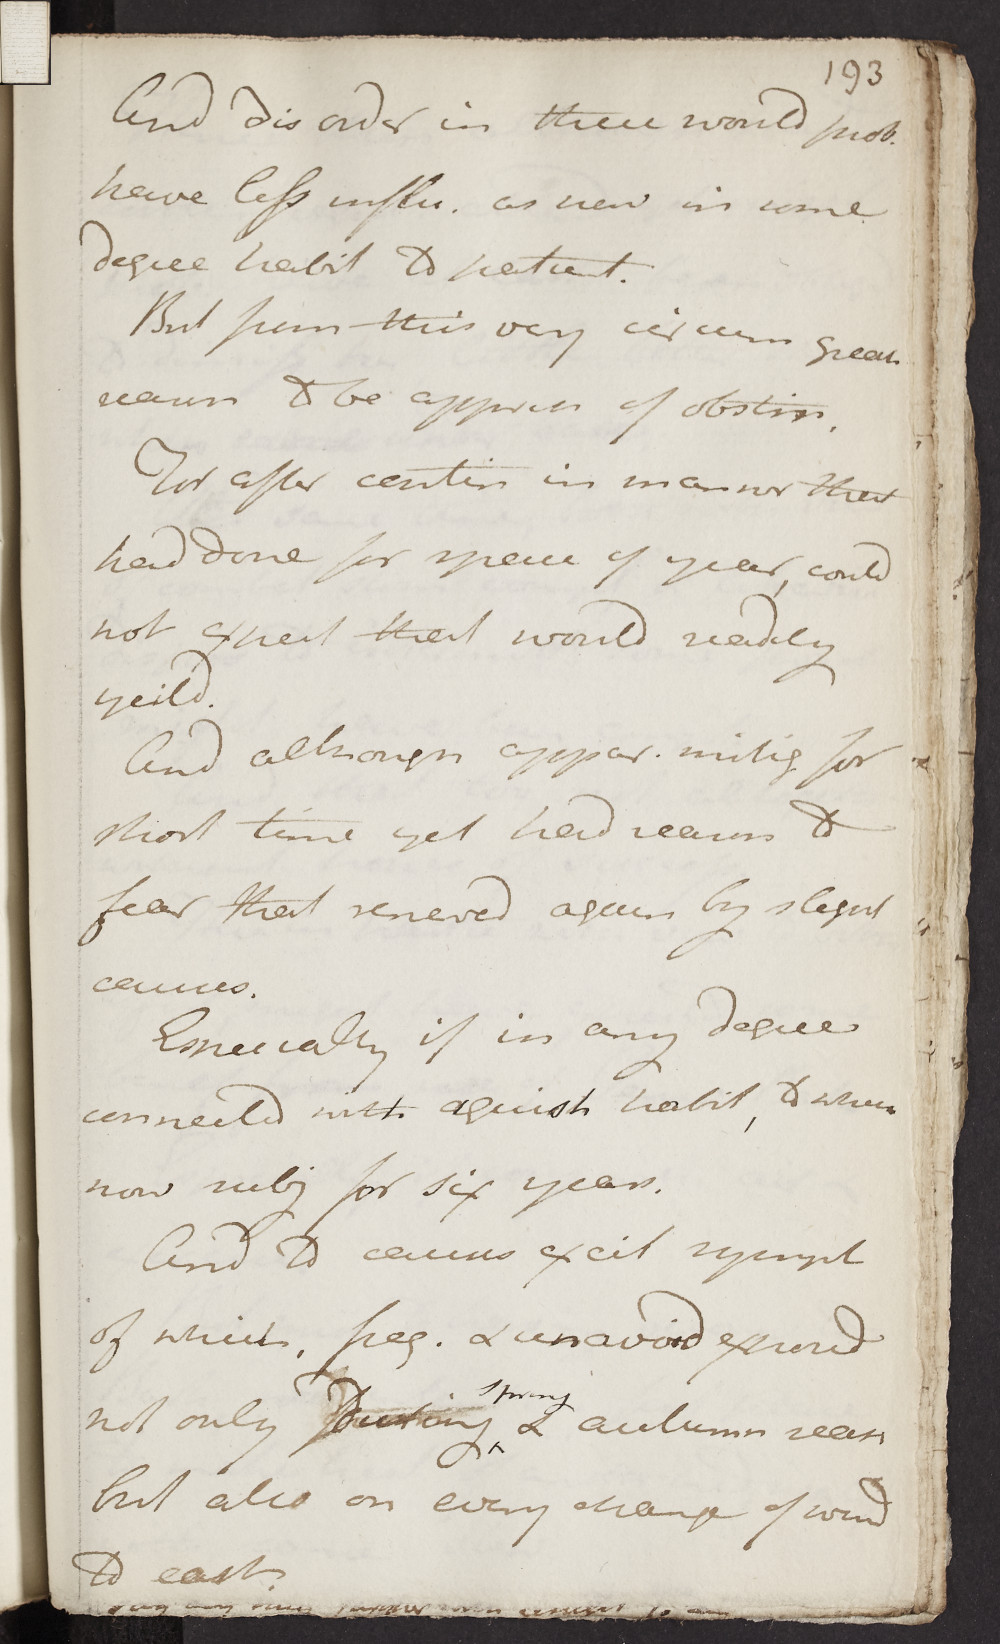 193
And disorder in these would prob.
have less influ. as now in some
degree habit to patient.
But from this very circum great
reason to be appreh of obstin.
For after contin in manner that
had done for space of year, could
not expect that would readily
yeild.
And although appar. mitig for
short time yet had reason to
fear that renewed again by slight
causes.
Especially if in any degree
connected with aguish habit, to which
now subj for six years.
And to causes excit sympt
of which, freq. & unavoid exposed
not only During spring & autumn seas
but also on every change of wind
to east.